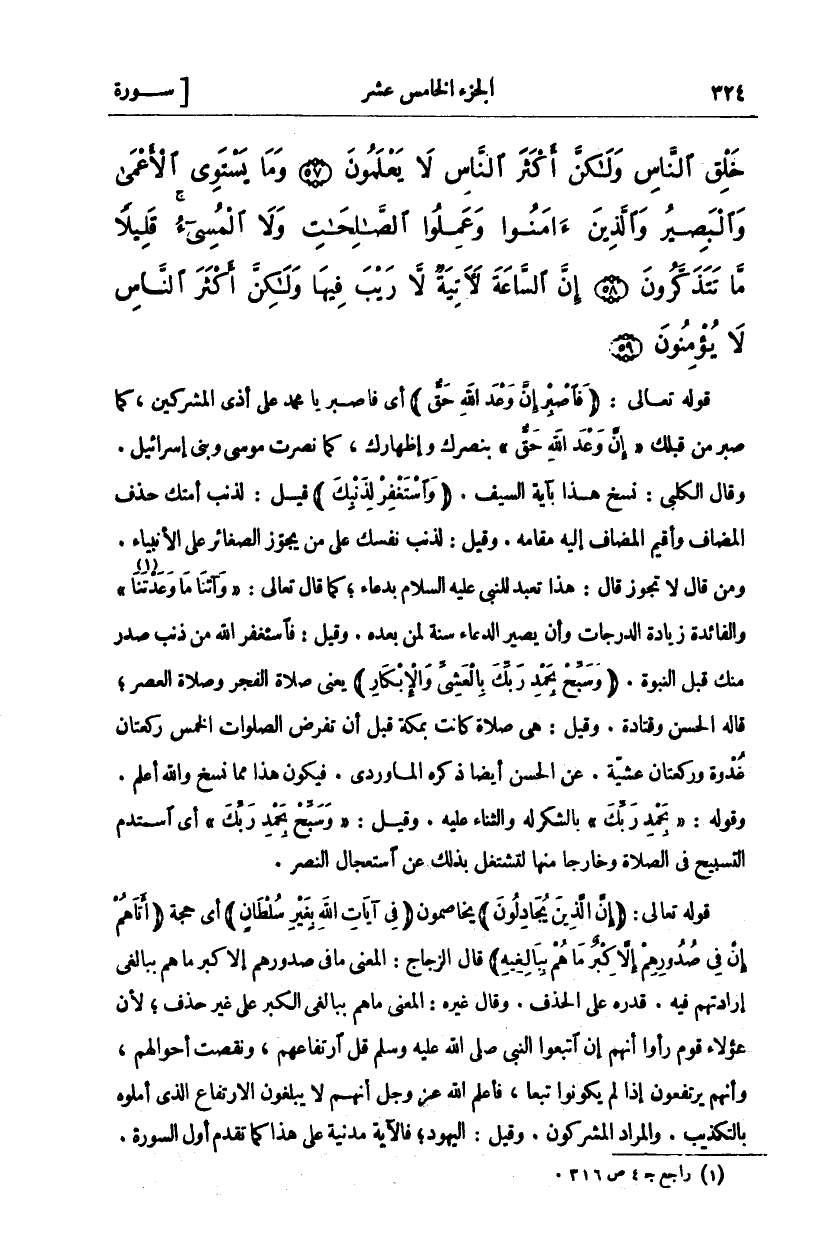 ٣٢٤ الجزء الخامس عشر [ ســورة
خَلْقِ ٱلنَّاسِ وَلَـٰكِنَّ أَكْثَرَ ٱلنَّاسِ لَا يَعْلَمُونَ ۝٥٧ وَمَا يَسْتَوِى ٱلْأَعْمَىٰ
وَٱلْبَصِيرُ وَٱلَّذِينَ ءَامَنُوا وَعَمِلُوا ٱلصَّـٰلِحَـٰتِ وَلَا ٱلْمُسِىٓءُ ۚ قَلِيلًا
مَّا تَتَذَكَّرُونَ ۝٥٨ إِنَّ ٱلسَّاعَةَ لَـَٔاتِيَةٌ لَّا رَيْبَ فِيهَا وَلَـٰكِنَّ أَكْثَرَ ٱلنَّـاسِ
لَا يُؤْمِنُونَ ۝٥٩
قوله تعـالى : ﴿ فَٱصْبِرْ إِنَّ وَعْدَ اللهِ حَقٌّ ﴾ أى فاصـبر يا محمد على أذى المشركين ، كما
صبر من قبلك « إِنَّ وَعْدَ اللهِ حَقٌّ » بنصرك وإظهارك ، كما نصرت موسى وبنى إسرائيل .
وقال الكلبى : نسخ هـذا بآية السيف . ﴿ وَٱسْتَغْفِرْ لِذَنْبِكَ ﴾ قيـل : لذنب أمتك حذف
المضاف وأقيم المضاف إليه مقامه . وقيل : لذنب نفسك على من يجوّز الصغائر على الأنبياء .
ومن قال لا تجوز قال : هذا تعبد للنبى عليه السلام بدعاء ؛ كما قال تعالى : « وَآتِنَا مَا وَعَدْتَنَا » (١)
والفائدة زيادة الدرجات وأن يصير الدعاء سنة لمن بعده . وقيل : فٱستغفر الله من ذنب صدر
منك قبل النبوة . ﴿ وَسَبِّحْ بِحَمْدِ رَبِّكَ بِالْعَشِىِّ وَالْإِبْكَارِ ﴾ يعنى صلاة الفجر وصلاة العصر ؛
قاله الحسن وقتادة . وقيل : هى صلاة كانت بمكة قبل أن تفرض الصلوات الخمس ركعتان
غُدْوة وركعتان عشيّة . عن الحسن أيضا ذكره المـاوردى . فيكون هذا مما نسخ والله أعلم .
وقوله : « بِحَمْدِ رَبِّكَ » بالشكر له والثناء عليه . وقيـل : « وَسَبِّحْ بِحَمْدِ رَبِّكَ » أى ٱسـتدم
التسبيح فى الصلاة وخارجا منها لتشتغل بذلك عن ٱستعجال النصر .
قوله تعالى: ﴿ إِنَّ الَّذِينَ يُجَادِلُونَ ﴾ يخاصمون ﴿ فِى آيَاتِ اللهِ بِغَيْرِ سُلْطَانٍ ﴾ أى حجة ﴿ أَتَاهُمْ
إِنْ فِى صُدُورِهِمْ إِلَّا كِبْرٌ مَا هُمْ بِبَالِغِيهِ ﴾ قال الزجاج : المعنى ما فى صدورهم إلا كبر ما هم ببالغى
إرادتهم فيه . قدره على الحذف . وقال غيره : المعنى ما هم ببالغى الكبر على غير حذف ؛ لأن
هؤلاء قوم رأوا أنهم إن ٱتبعوا النبى صلى الله عليه وسلم قل ٱرتفاعهم ، ونقصت أحوالهم ،
وأنهم يرتفعون إذا لم يكونوا تبعا ، فأعلم الله عز وجل أنهـم لا يبلغون الارتفاع الذى أملوه
بالتكذيب . والمراد المشركون . وقيل : اليهود؛ فالآية مدنية على هذا كما تقدم أول السورة .
(١) راجع جـ ٤ ص ٣١٦ .